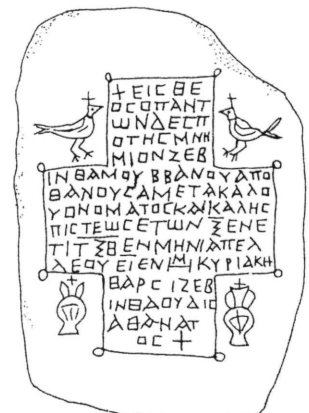 +ΕΙϹΘΕ
ΟϹΟΠΑΝΤ
ΩΝΔΕϹΠ
ΟΤΗϹΜΝΗ
ΜΙΟΝΖΕΒ
ΙΝΘΑΜΟΥΒΒΑΝΟΥΑΠΟ
ΘΑΝΟΥϹΑΜΕΤΑΚΑΛΟ
ΥΟΝΟΜΑΤΟϹΚΑΙΚΑΛΗϹ
ΠΙϹΤΕΩϹΕΤΩΝΞΕΝΕ
ΤΙΤΞΘΕΝΜΗΝΙΑΠΕΛ
ΛΕΟΥΕΙΕΝΙΜΚΥΡΙΑΚΗ
ΒΑΡϹΙΖΕΒ
ΙΝΘΑΟΥΔΙϹ
ΑΘΑΝΑΤ
ΟϹ+